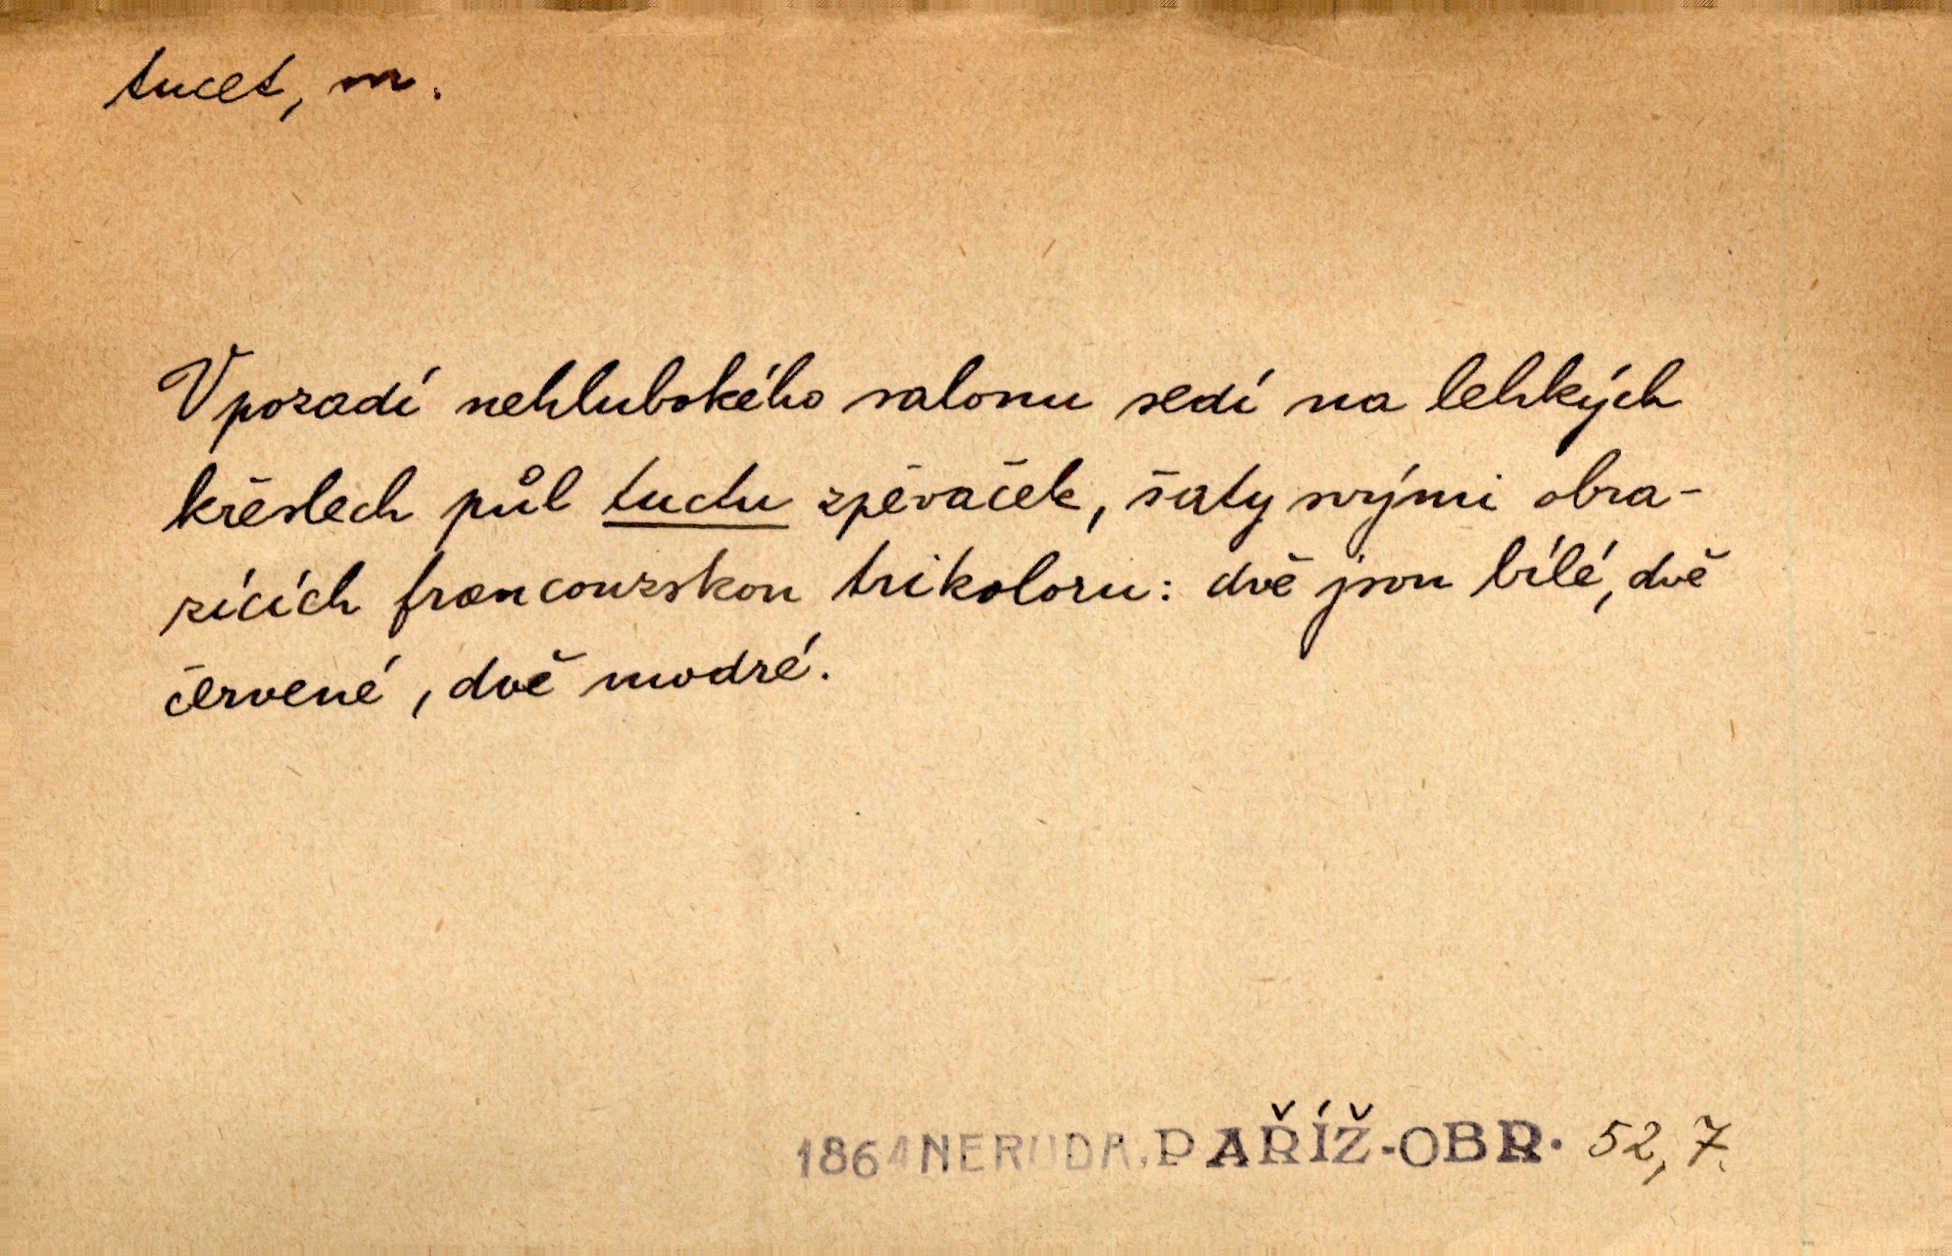 tucet, m.
V pozadí nehlubokého salonu sedí na lehkých
křeslech půl tuctu zpěvaček, šaty svými obra-
zících francouzskou trikoloru: dvě jsou bílé, dvě
červené, dvě modré.
1864 NERUDA, PAŘÍŽ-OBR. 52,7.